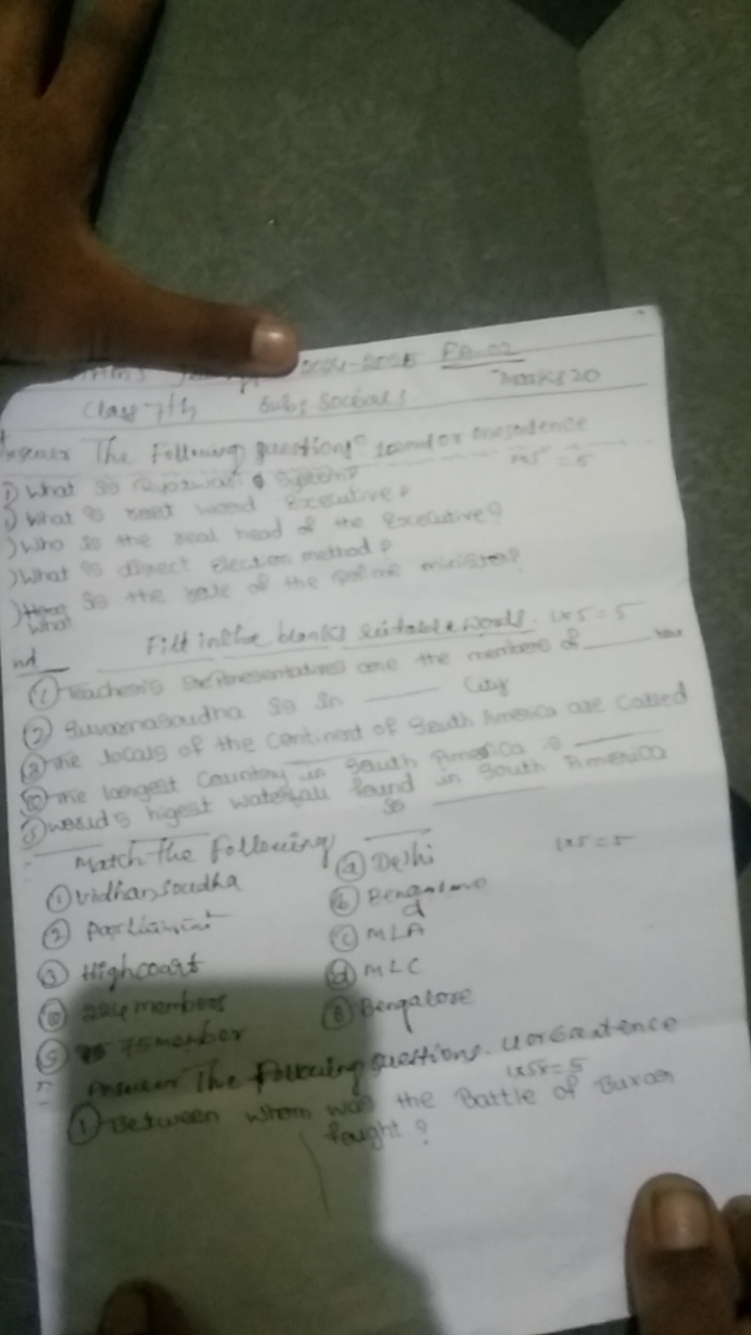 2024-2025 FA-02
Class 7th Sub: Socials Marks 20
Answer The Following questions one sentence
1x5 = 5
1) What is Ryotwari System?
) What is root word Executive?
) Who is the real head of the Executive?
) What is direct Election method?
) What is the role of the prime minister?
Fill in the blanks suitable words. 1x5=5
① Teacher's Representatives are the members of ____
② Suvarnasoudha is in ____ City
③ The locals of the Continent of South America are called
④ The largest Country in South America is ____
⑤ World's higest waterfall found in South America
is ____
Match The Following 1x5=5
① Vidhansoudha ⓐ Delhi
② Parliament ⓑ
③ Highcoart ⓒ MLA
④ 224 members ⓓ MLC
⑤ 75 member ⓔ Bengalore
Answer The Following questions. Sentence
1x5=5
① Between whom was the Battle of Buxar
fought?